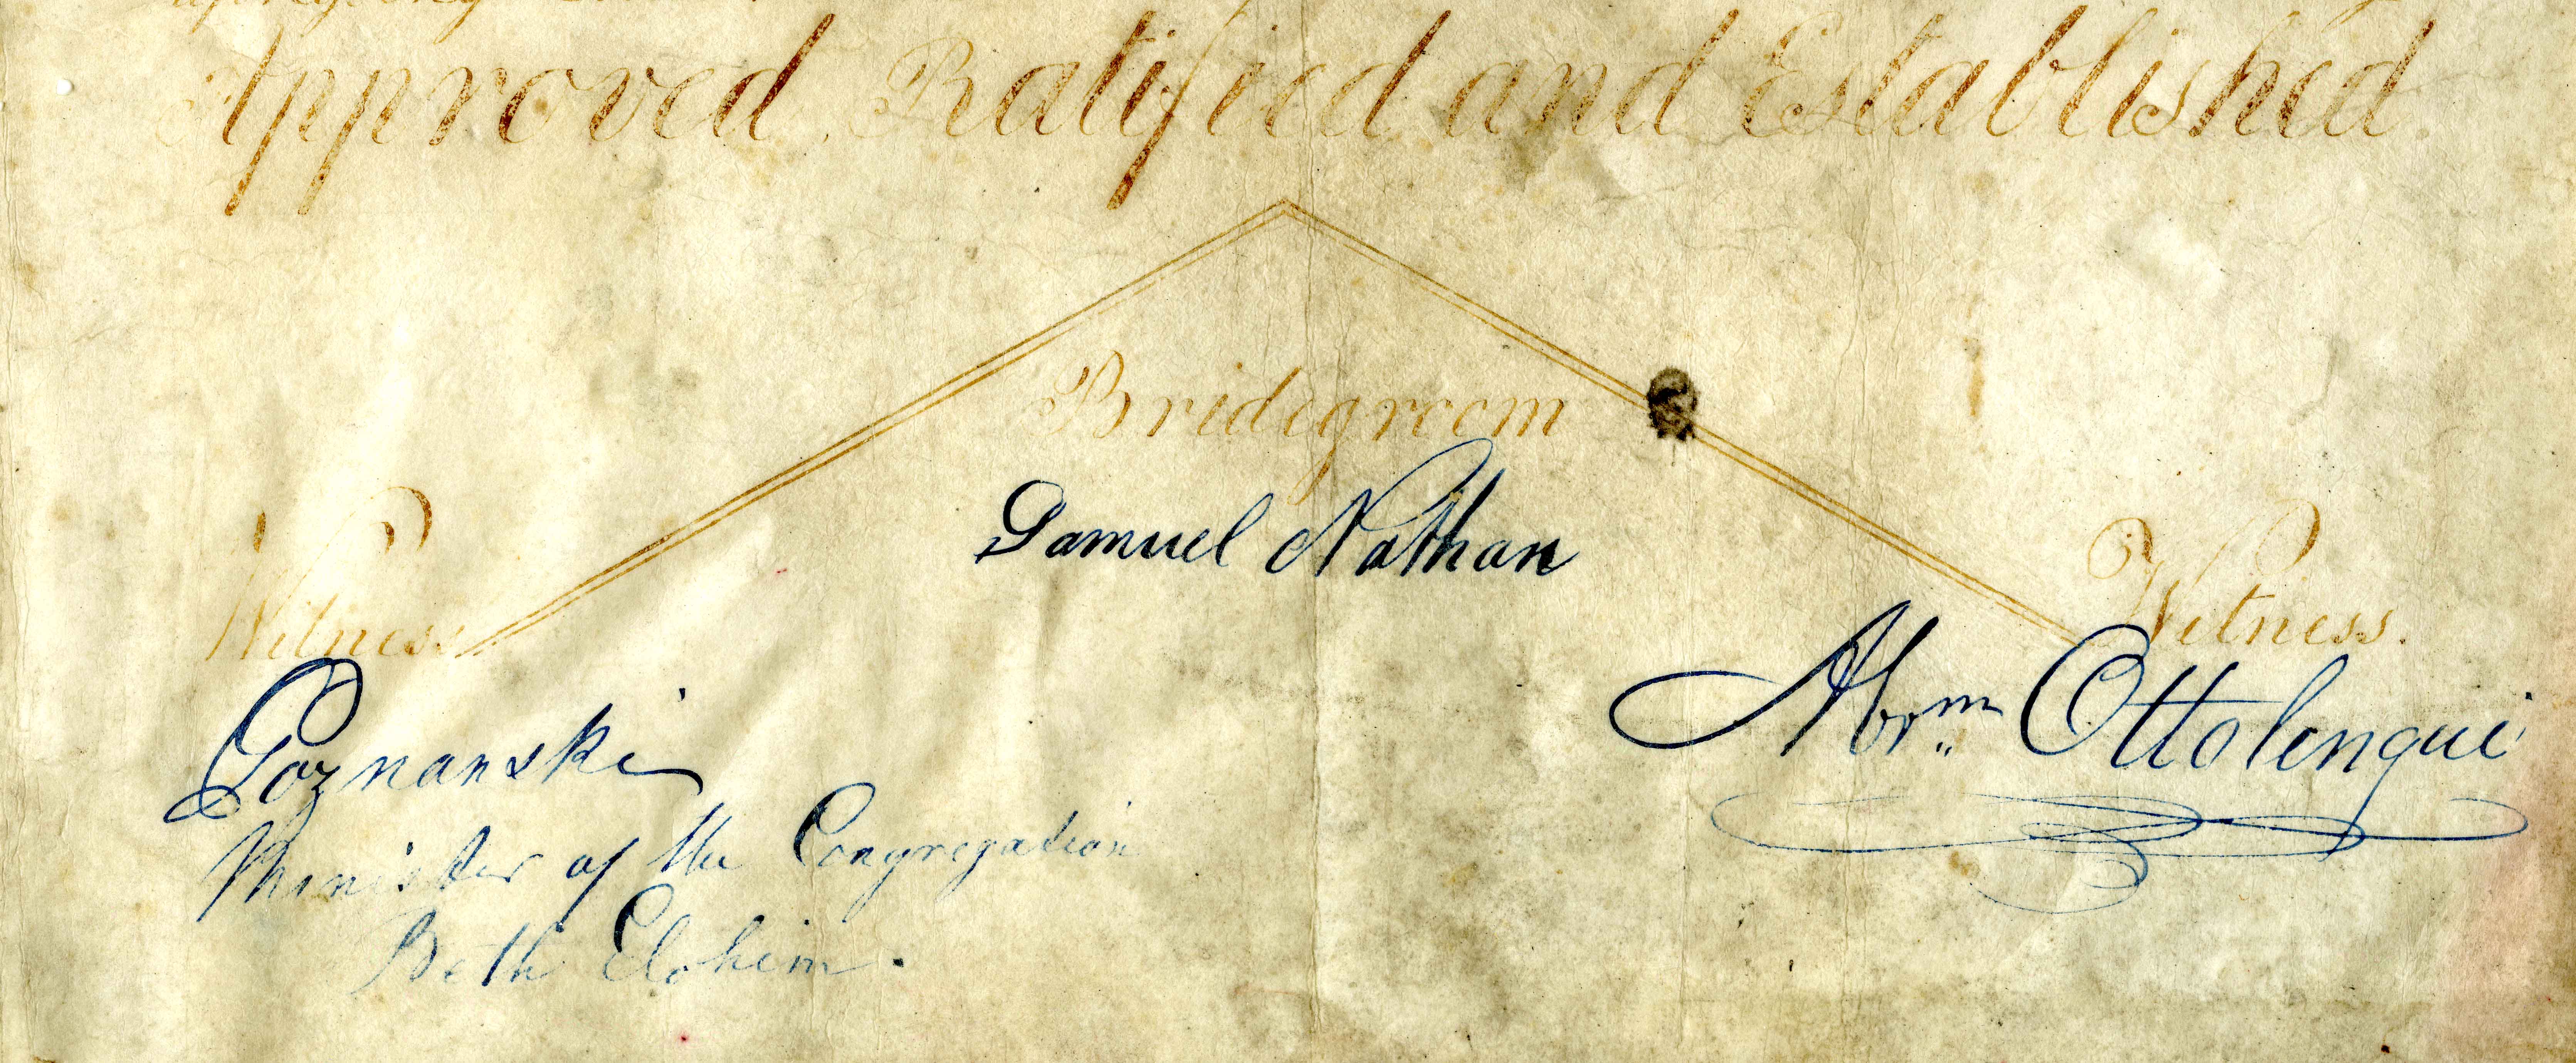 Approved, Ratified and Established
Bridegroom
Samuel Nathan
Witness
Poznanski
Minister of the Congregation
Beth Elohim.
Witness.
Abrm Ottolengui